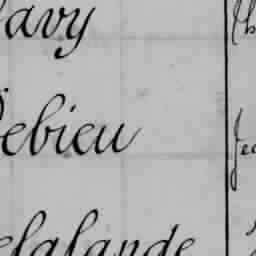 avy
ebieu
elalande